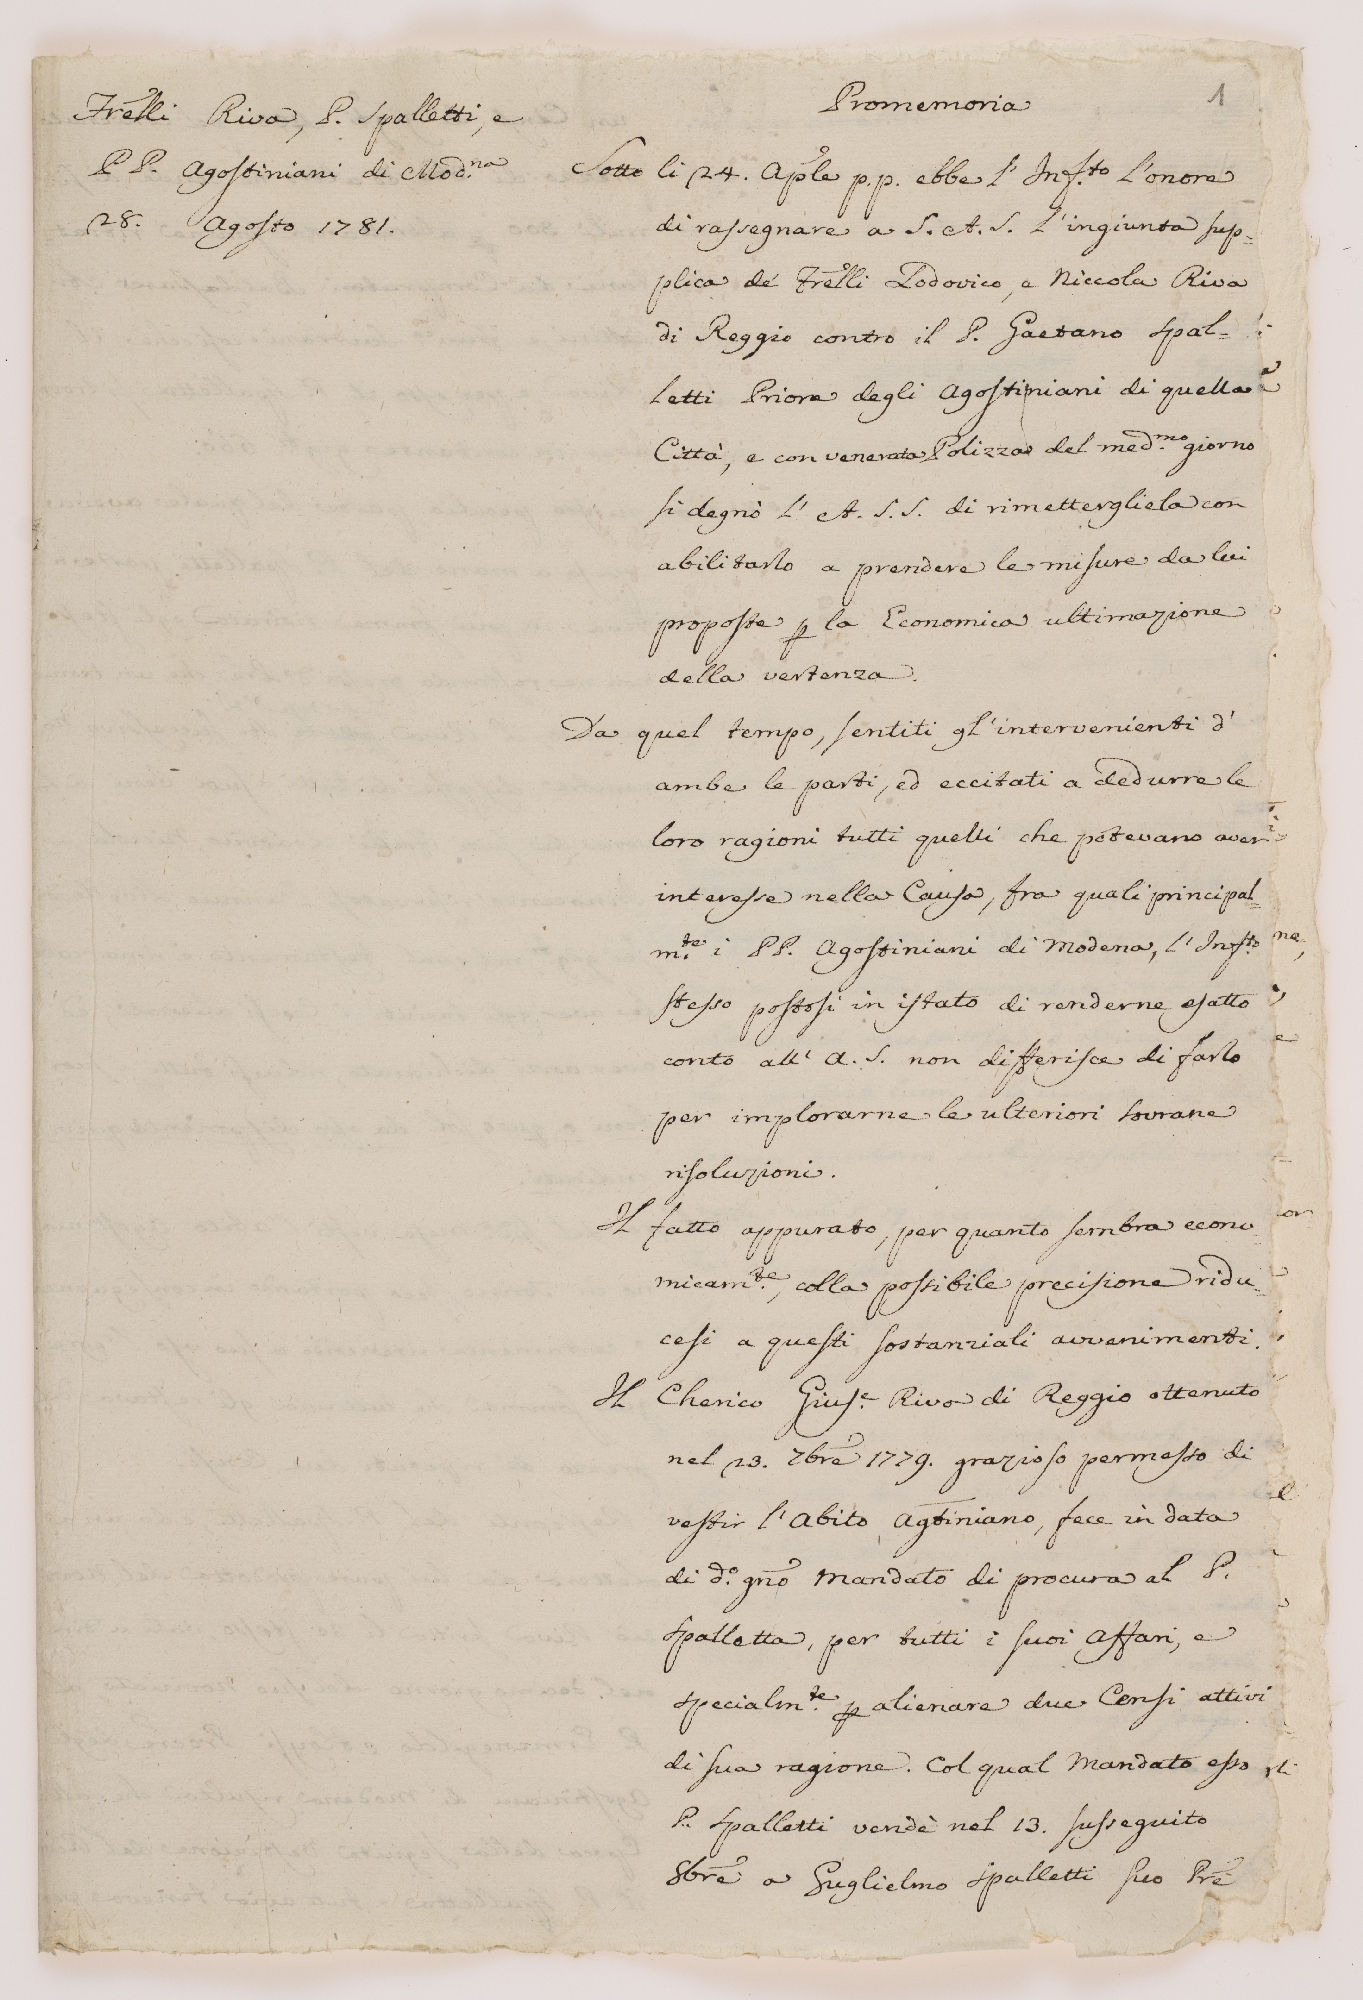 Frẽlli Riva, P. Spalletti, e
P P. Agostiniani di Mod.na
28. Agosto 1781.
Promemoria
1
Sotto li 24. Aple p.p. ebbe l' Inf.to l'onore
di rassegnare a S. A. S. l'ingiunta sup-
plica de' Frẽlli Lodovico, e Niccola Riva
di Reggio contro il P. Gaetano Spal-
letti Priore degli Agostiniani di quella
Città, e con venerata Polizza del med.mo giorno
si degnò l' A. S. S. di rimettergliela con
abilitarlo a prendere le misure da lui
proposte p la Economica ultimazione
della vertenza.
Da quel tempo, sentiti gl'intervenienti d'
ambe le parti, ed eccitati a dedurre le
loro ragioni tutti quelli che potevano aver
interesse nella Causa, fra quali principal-
m.te i PP. Agostiniani di Modena, l' Inf.to
stesso postosi in istato di renderne esatto
conto all' A. S. non differisce di farlo
per implorarne le ulteriori sovrane
risoluzioni.
Il fatto appurato, per quanto sembra econo-
micam.te, colla possibile precisione ridu-
cesi a questi sostanziali avvenimenti.
Il Cherico Gius.e Riva di Reggio ottenuto
nel 23. 7brẽ 1779. grazioso permesso di
vestir l'Abito Agtiniano, fece in data
di d.o gño Mandato di procura al P.
Spalletta, per tutti i suoi Affari, e
specialm.te p alienare due Censi attivi
di sua ragione. Col qual Mandato esso
P. Spalletti vendè nel 13. susseguito
8brẽ a Guglielmo Spalletti suo Prẽ